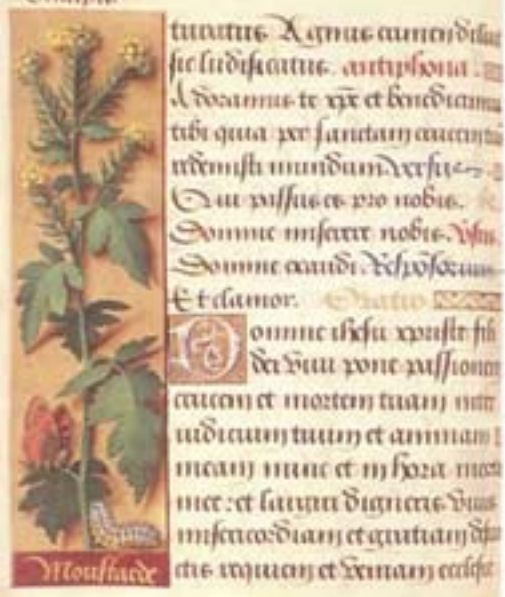 turatus Agnus
sic ludificatus. antiphona.
Adoramus te xpe et benedicimus
tibi quia per sanctam crucem
redemisti mundum. versus
Qui passus es pro nobis.
Domine miserere nobis.
Domine exaudi. Responsorium
Et clamor. Oratio
Domine ihesu xpriste fili
dei vivi pone passionem
crucem et mortem tuam inter
iudicium tuum et animam
meam nunc et in hora
mee: et largiri digneris vivis
misericordiam et gratiam
ctis requiem et veniam ecclesie
Moustarde